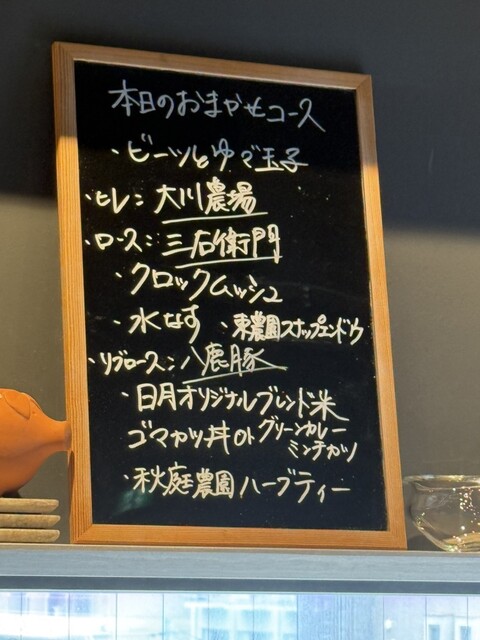 本日のおまかせコース
・ビーツとゆで玉子
・ヒレ:大川農場
・ロース:三右衛門
・クロックムッシュ
・水なす ・東農園スナップエンドウ
・リブロース:八鹿豚
・日月オリジナルブレンド米
ゴマカツ丼or グリーンカレー
ミンチカツ
・秋庭農園ハーブティー